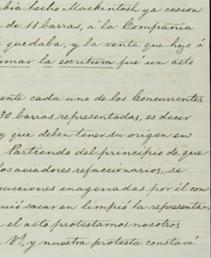 bia hecho Mackintosh ya cesion
de 11 barras, a la Compañia
quedaba, y la venta que hoy á
mar la escritura fué un acto
ente cada uno de los Concurrentes
30 barras representadas, es decir
y que deben tener su origen en
Partiendo del principio de que
los aviadores refaccionarios, se
acciones enagenadas por él con
uió sacar en limpio la representa-
el acto protestamos nosotros
V., y nuestra protesta constará